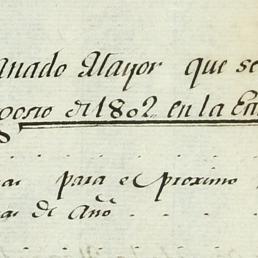 anado Mayor que se
gosto de 1802 en la Ea
as para el proximo
as de Año